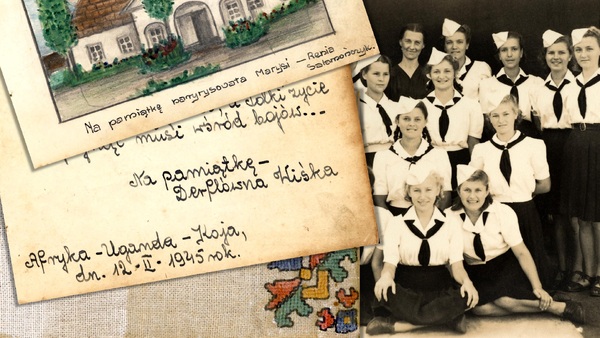 Na pamiątkę wyrysowała Marysi — Renia
Salamończyk.
życie
musi wśród bojów...
Na pamiątkę-
Derflówna Wiśka
Afryka-Uganda-Koja,
dn. 12-II-1945 rok.